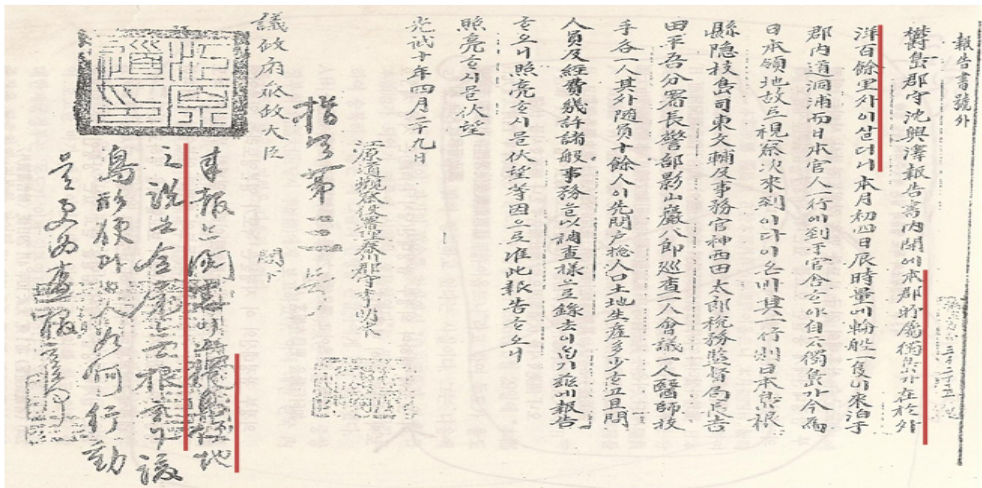 報告書號外
欝島郡守沈興澤報告書內開에本郡所屬獨島가在於外
洋百餘里外이살더니本月初四日辰時量에輪船一隻이來泊于
郡內道洞浦而日本官人一行에到于官舍ᄒᆞ야自云獨島가今爲
日本領地故로視察次來到이다이온바其一行則日本島根
縣隱技島司東文輔及事務官神西田太郎稅務監督局長吉
田平吾分署長警部影山巖八郎巡査一人會議一人醫師技
手各一人其外隨員十餘人이先問戶摠人口土地生産多少ᄒᆞ고且問
人員及經費幾許諸般事務을以調査樣으로錄去이읍기玆에報告
ᄒᆞ오니照亮ᄒᆞ시믈伏望等因으로准此報告ᄒᆞ오니
照亮ᄒᆞ시믈伏望
光武十年四月二十九日
江原道觀察使署理春川郡守李明來
指令第三號
議政府參政大臣 閣下
來報는閱悉이고獨島領地
之說은全屬無根하나該
島形便과日人如何行動
을更爲査報할사